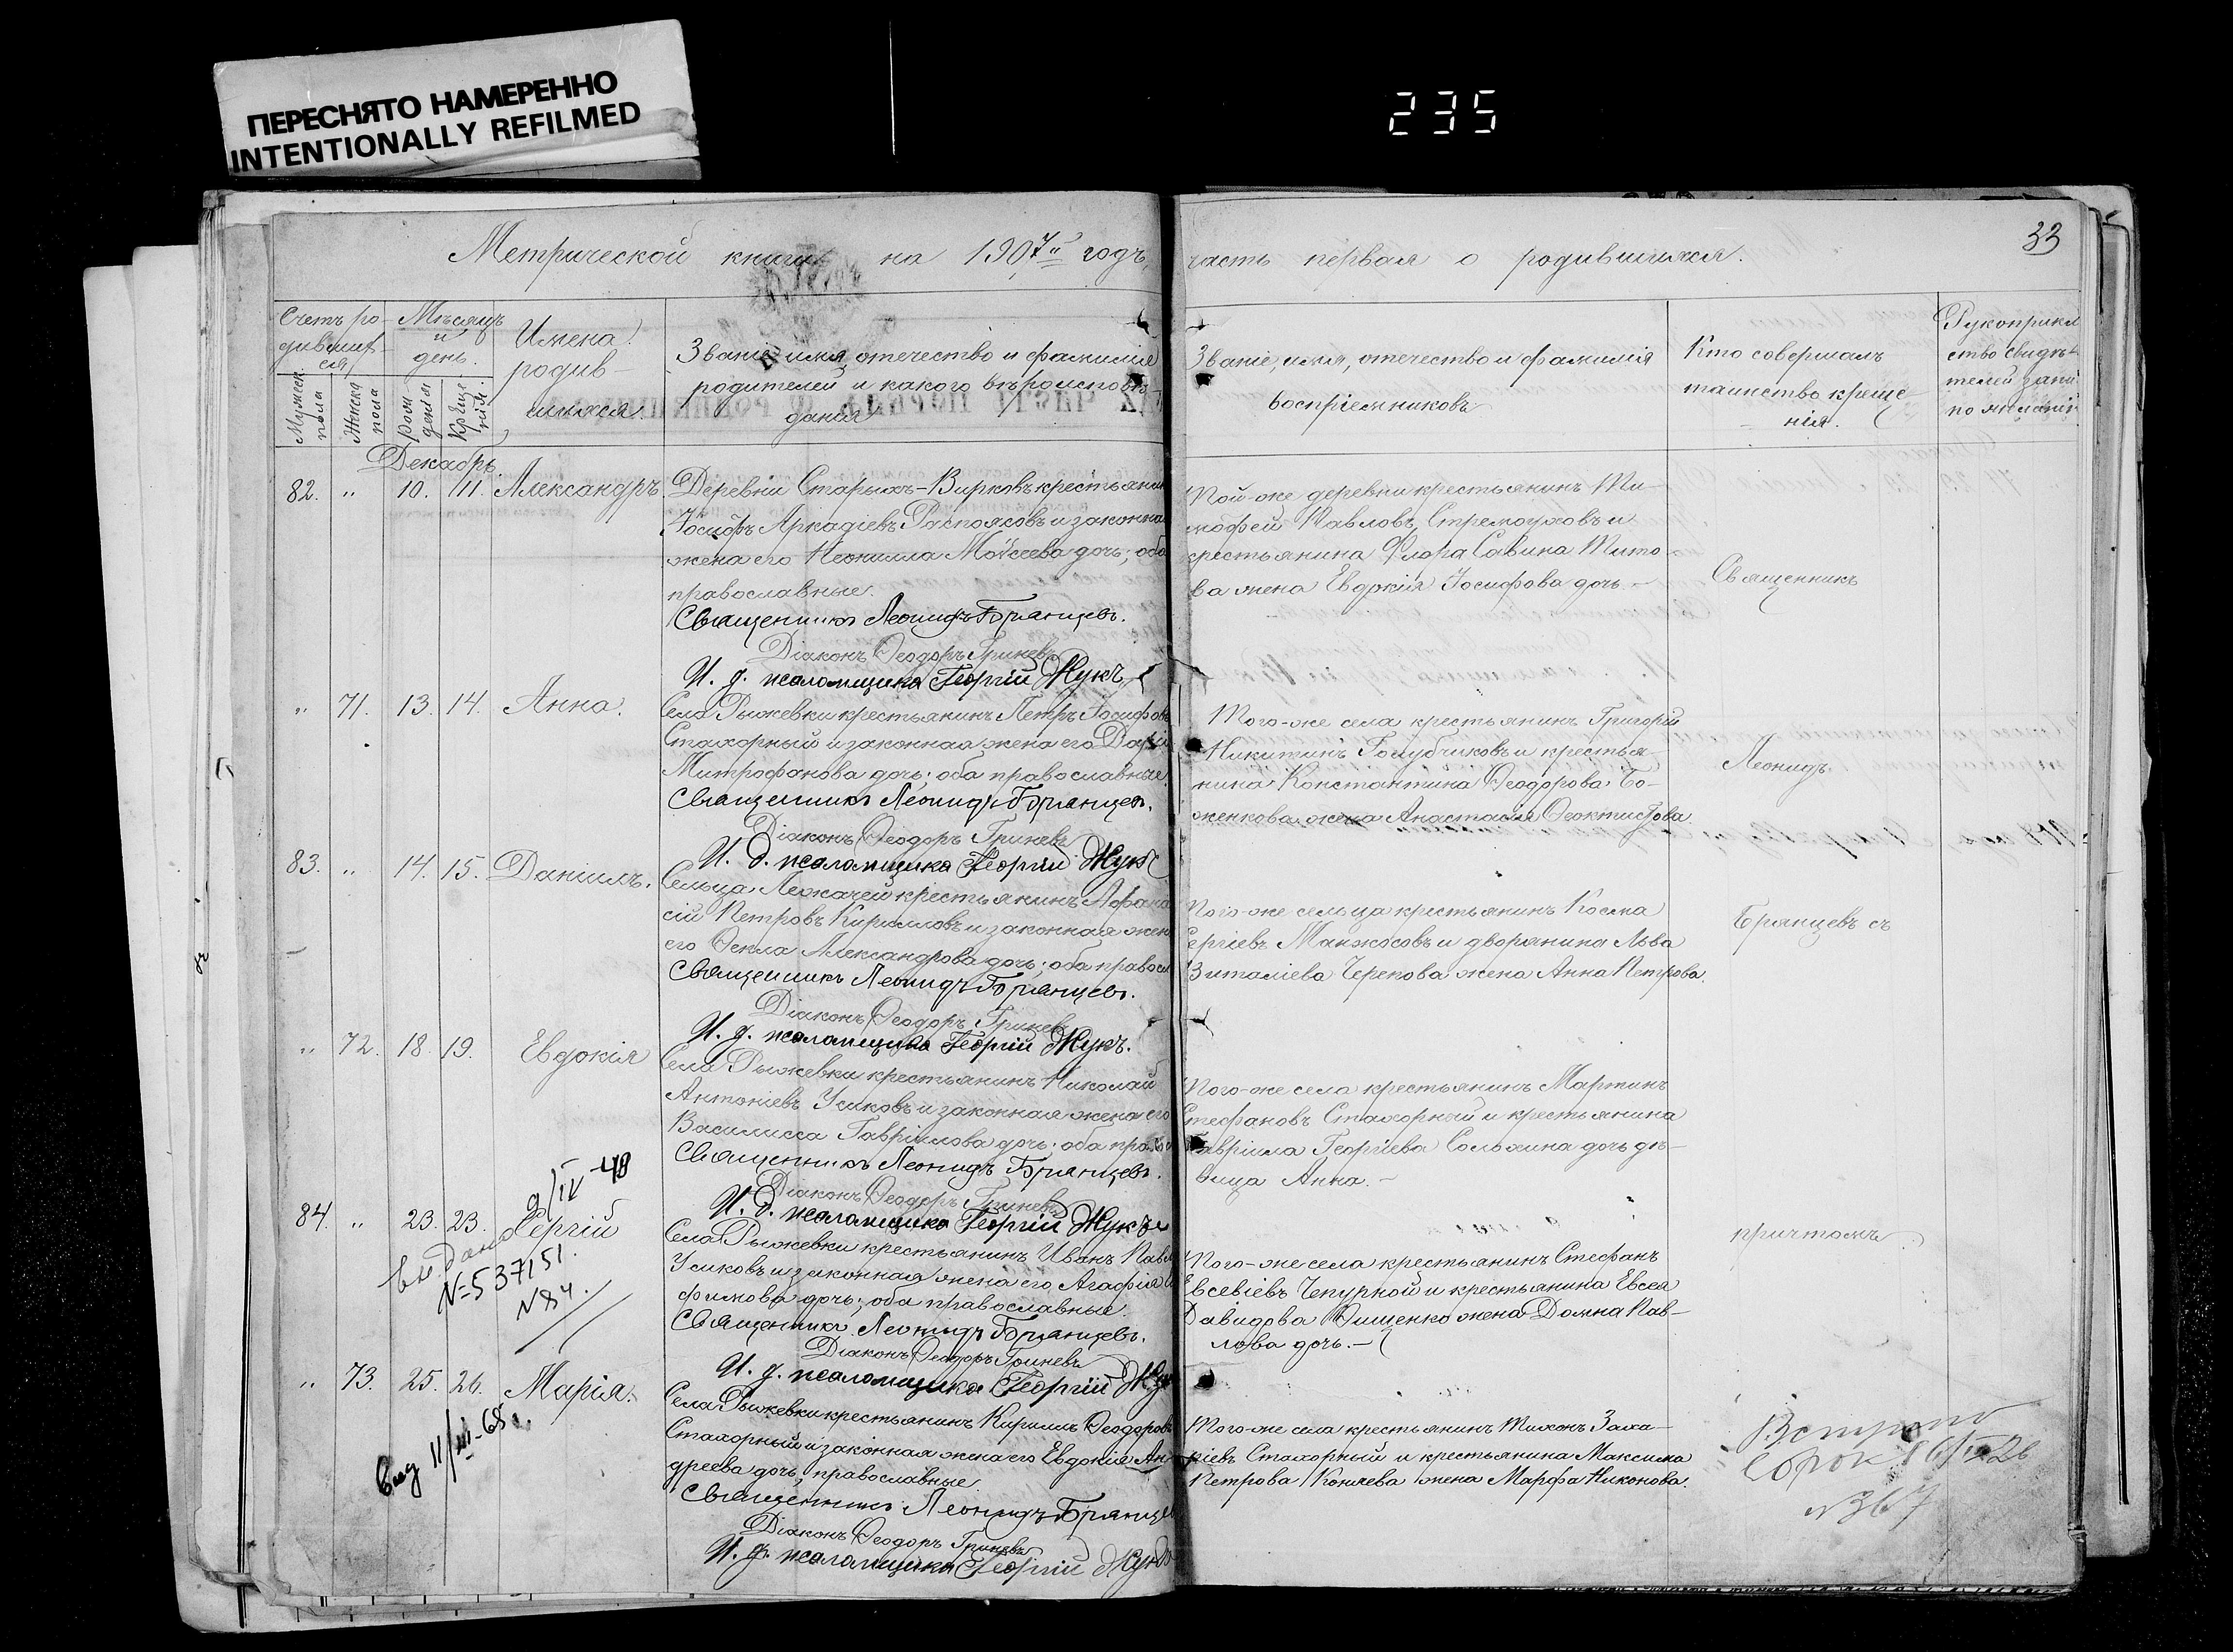 ПЕРЕСНЯТО НАМЕРЕННО
INTENTIONALLY REFILMED
235
33
Метрической книги на 1907й годъ, часть первая о родившихся.
Счетъ ро-
дивших-
ся
Мѣсяцъ
и
день.
Имена
родив-
шихся
Званіе, имя, отечество и фамилія
родителей и какого вѣроисповѣ-
данія
Мужеск.
пола
Женска
пола
рож
денія
Креще
нія.
Званіе, имя, отечество и фамилія
воспріемниковъ
Кто совершалъ
таинство креще-
нія.
Рукоприкл
ство свидѣ-
телей запи
по желанію
Декабрь
82. " 10. 11. Александръ.
Деревни Старыхъ-Вирковъ крестьянин
Іосифъ Аркадіевъ Распоясовъ и законная
жена его Неонилла Моѵсеева дочь; оба
православные.
Священникъ Леонидъ Брянцевъ.
Діаконъ Ѳеодоръ Гриневъ
И. д. псаломщика Георгій Жукъ
Той-же деревни крестьянинъ Ти-
мофей Павловъ Стремоуховъ и
крестьянина Флора Савина Тито-
ва жена Евдокія Іосифова дочь.—
Священникъ
" 71. 13. 14. Анна.
Села Рыжевки крестьянинъ Петръ Іосифовъ
Стахорный и законная жена его Дарія
Митрофанова дочь; оба православные
Священникъ Леонидъ Брянцевъ.
Діаконъ Ѳеодоръ Гриневъ
И. д. псаломщика Георгій Жукъ
Того-же села крестьянинъ Григорій
Никитинъ Голубчиковъ и крестья-
нина Константина Ѳеодорова Бо-
женкова жена Анастасія Ѳеоктистова.
Леонидъ
83. " 14. 15. Даніилъ.
Сельца Лежачей крестьянинъ Афана
сій Петровъ Кирилловъ и законная жен
его Ѳекла Александрова дочь; оба правосл
Священникъ Леонидъ Брянцевъ.
Діаконъ Ѳеодоръ Гриневъ
И. д. псаломщика Георгій Жукъ.
Того-же сельца крестьянинъ Косма
Сергіевъ Манжосовъ и дворянина Льва
Виталіева Черепова жена Анна Петрова.
Брянцевъ съ
" 72. 18. 19. Евдокія
Села Рыжевки крестьянинъ Николай
Антоніевъ Усиковъ и законная жена его
Василисса Гавріилова дочь; оба прав
Священникъ Леонидъ Брянцевъ.
Діаконъ Ѳеодоръ Гриневъ
И. д. псаломщика Георгій Жукъ
Того-же села крестьянинъ Мартинъ
Стефановъ Стахорный и крестьянина
Гавріила Георгіева Сольхина дочь дѣ-
вица Анна.—
84. " 23. 23. Сергій
9/IV-48
выдано
№-537151.
№84.
Села Рыжевки крестьянинъ Иванъ Павл
Усиковъ и законная жена его Агафія
фимова дочь; оба православные.
Священникъ Леонидъ Брянцевъ.
Діаконъ Ѳеодоръ Гриневъ
И. д. псаломщика Георгій Жук
Того-же села крестьянинъ Стефанъ
Евсевіевъ Чепурной и крестьянина Евсея
Давидова Онищенко жена Домна Пав-
лова дочь.—
причтомъ.
" 73. 25. 26. Марія.
выд 11/III-65г.
Села Рыжевки крестьянинъ Кириллъ Ѳеодоровъ
Стахорный и законная жена его Евдокія Ан
дреева дочь, православные.
Священникъ Леонидъ Брянцев
Діаконъ Ѳеодоръ Гриневъ
И. д. псаломщика Георгій Жукъ
Того-же села крестьянинъ Тихонъ Заха-
ріевъ Стахорный и крестьянина Максима
Петрова Коняева жена Марфа Никонова.
№367